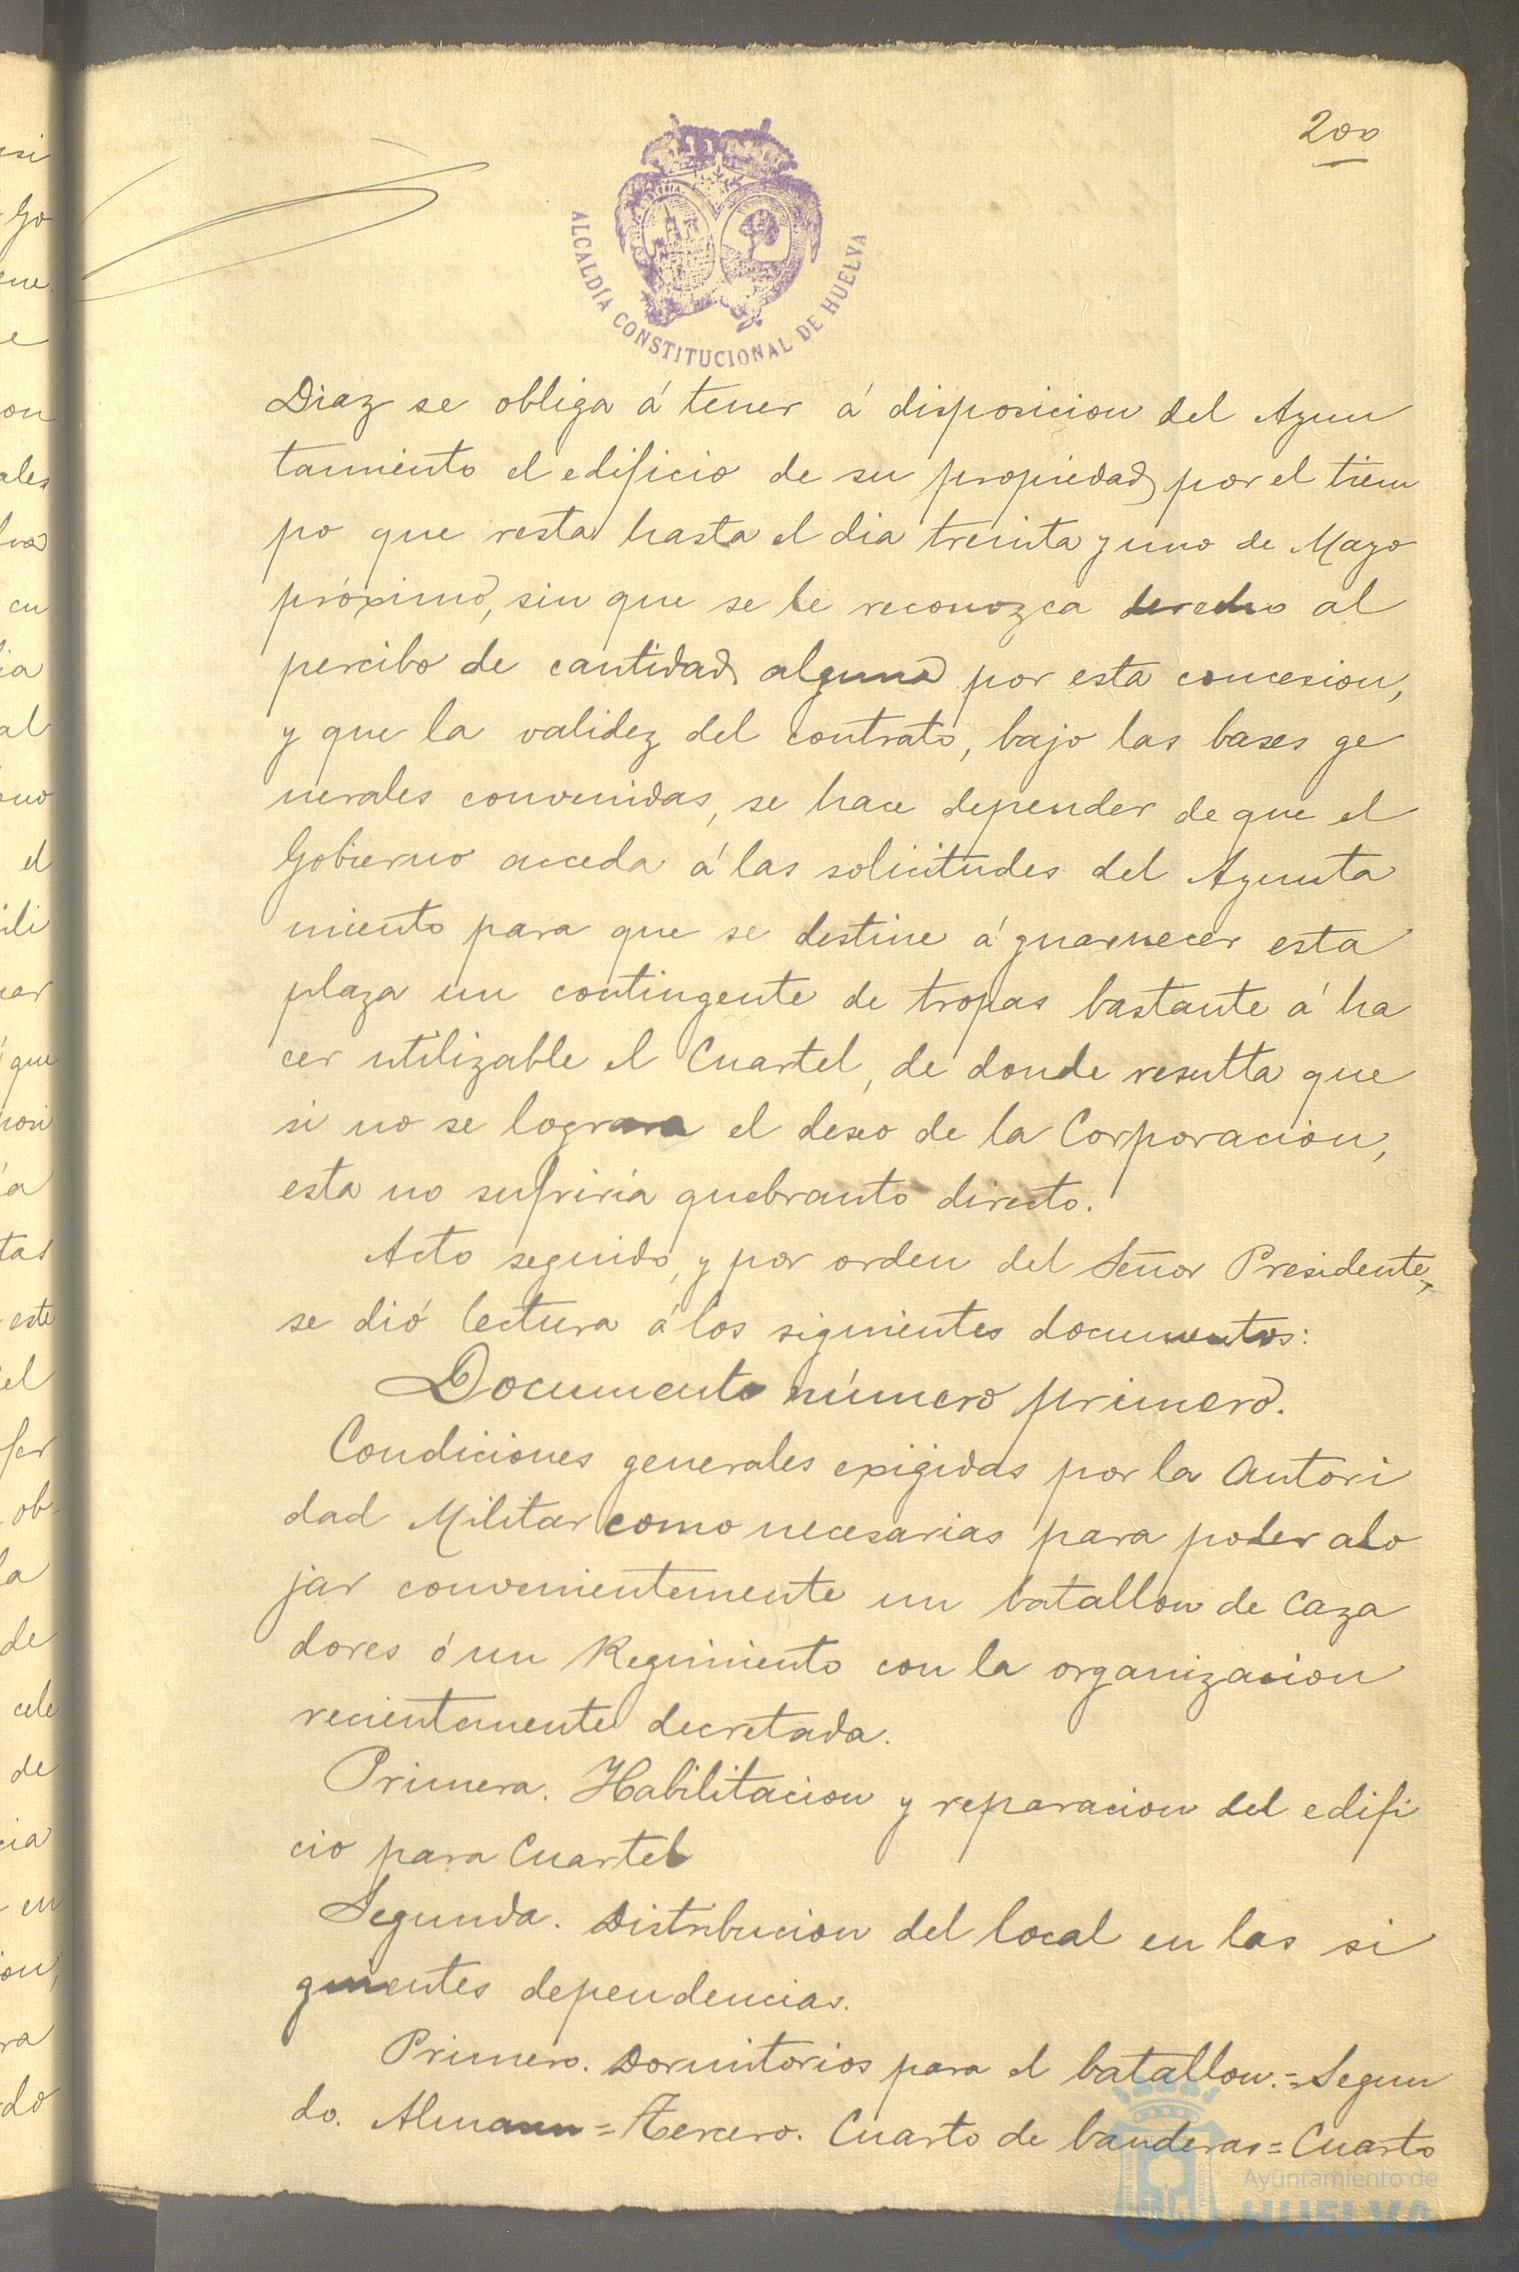 200
ALCALDÍA CONSTITUCIONAL DE HUELVA
Diaz se obliga á tener á disposicion del Ayun
tamiento el edificio de su propiedad por el tiem
po que resta hasta el dia treinta y uno de Mayo
próximo, sin que se le reconozca derecho al
percibo de cantidad alguna por esta concesion,
y que la validez del contrato, bajo las bases ge
nerales convenidas, se hace depender de que el
Gobierno acceda á las solicitudes del Ayunta
miento para que se destine á guarnecer esta
plaza un contingente de tropas bastante á ha
cer utilizable el Cuartel, de donde resulta que
si no se lograra el deseo de la Corporacion,
esta no sufriria quebranto directo.
Acto seguido, y por orden del Señor Presidente,
se dió lectura á los siguientes documentos:
Documento número primero.
Condiciones generales exigidas por la Autori
dad Militar como necesarias para poder alo
jar convenientemente un batallon de Caza
dores ó un Regimiento con la organizacion
recientemente decretada.
Primera. Habilitacion y reparacion del edifi
cio para Cuartel
Segunda. Distribucion del local en las si
guientes dependencias.
Primero. Dormitorios para el batallon.=Segun
do. =Tercero. Cuarto de banderas=Cuarto
Ayuntamiento de
HUELVA
si
Go
ene
e
on
ales
cu
ia
al
el
ili
que
a
tas
este
el
ob-
la
de
cele
de
cia
en
on,
ra
do